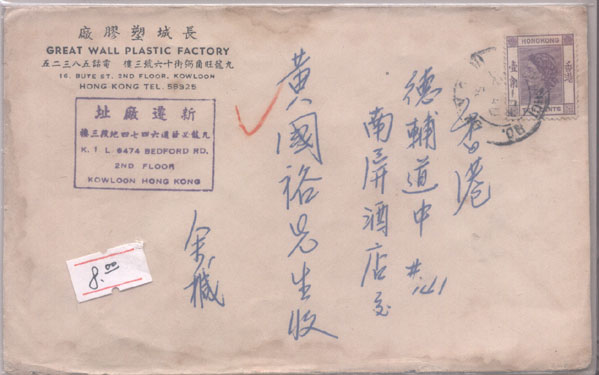 廠膠塑城長
GREAT WALL PLASTIC FACTORY
九龍旺角弼街十六號三樓 電話五八三二五
16. BUTE ST. 2ND FLOOR, KOWLOON
HONG KONG TEL. 58325
址廠遷新
K. I. L. 6474 BEDFORD RD.
2ND FLOOR
KOWLOON HONG KONG
HONGKONG
香港
CENTS
香港
德輔道中
南屏酒店交
黃國裕先生收
余椷
8.00